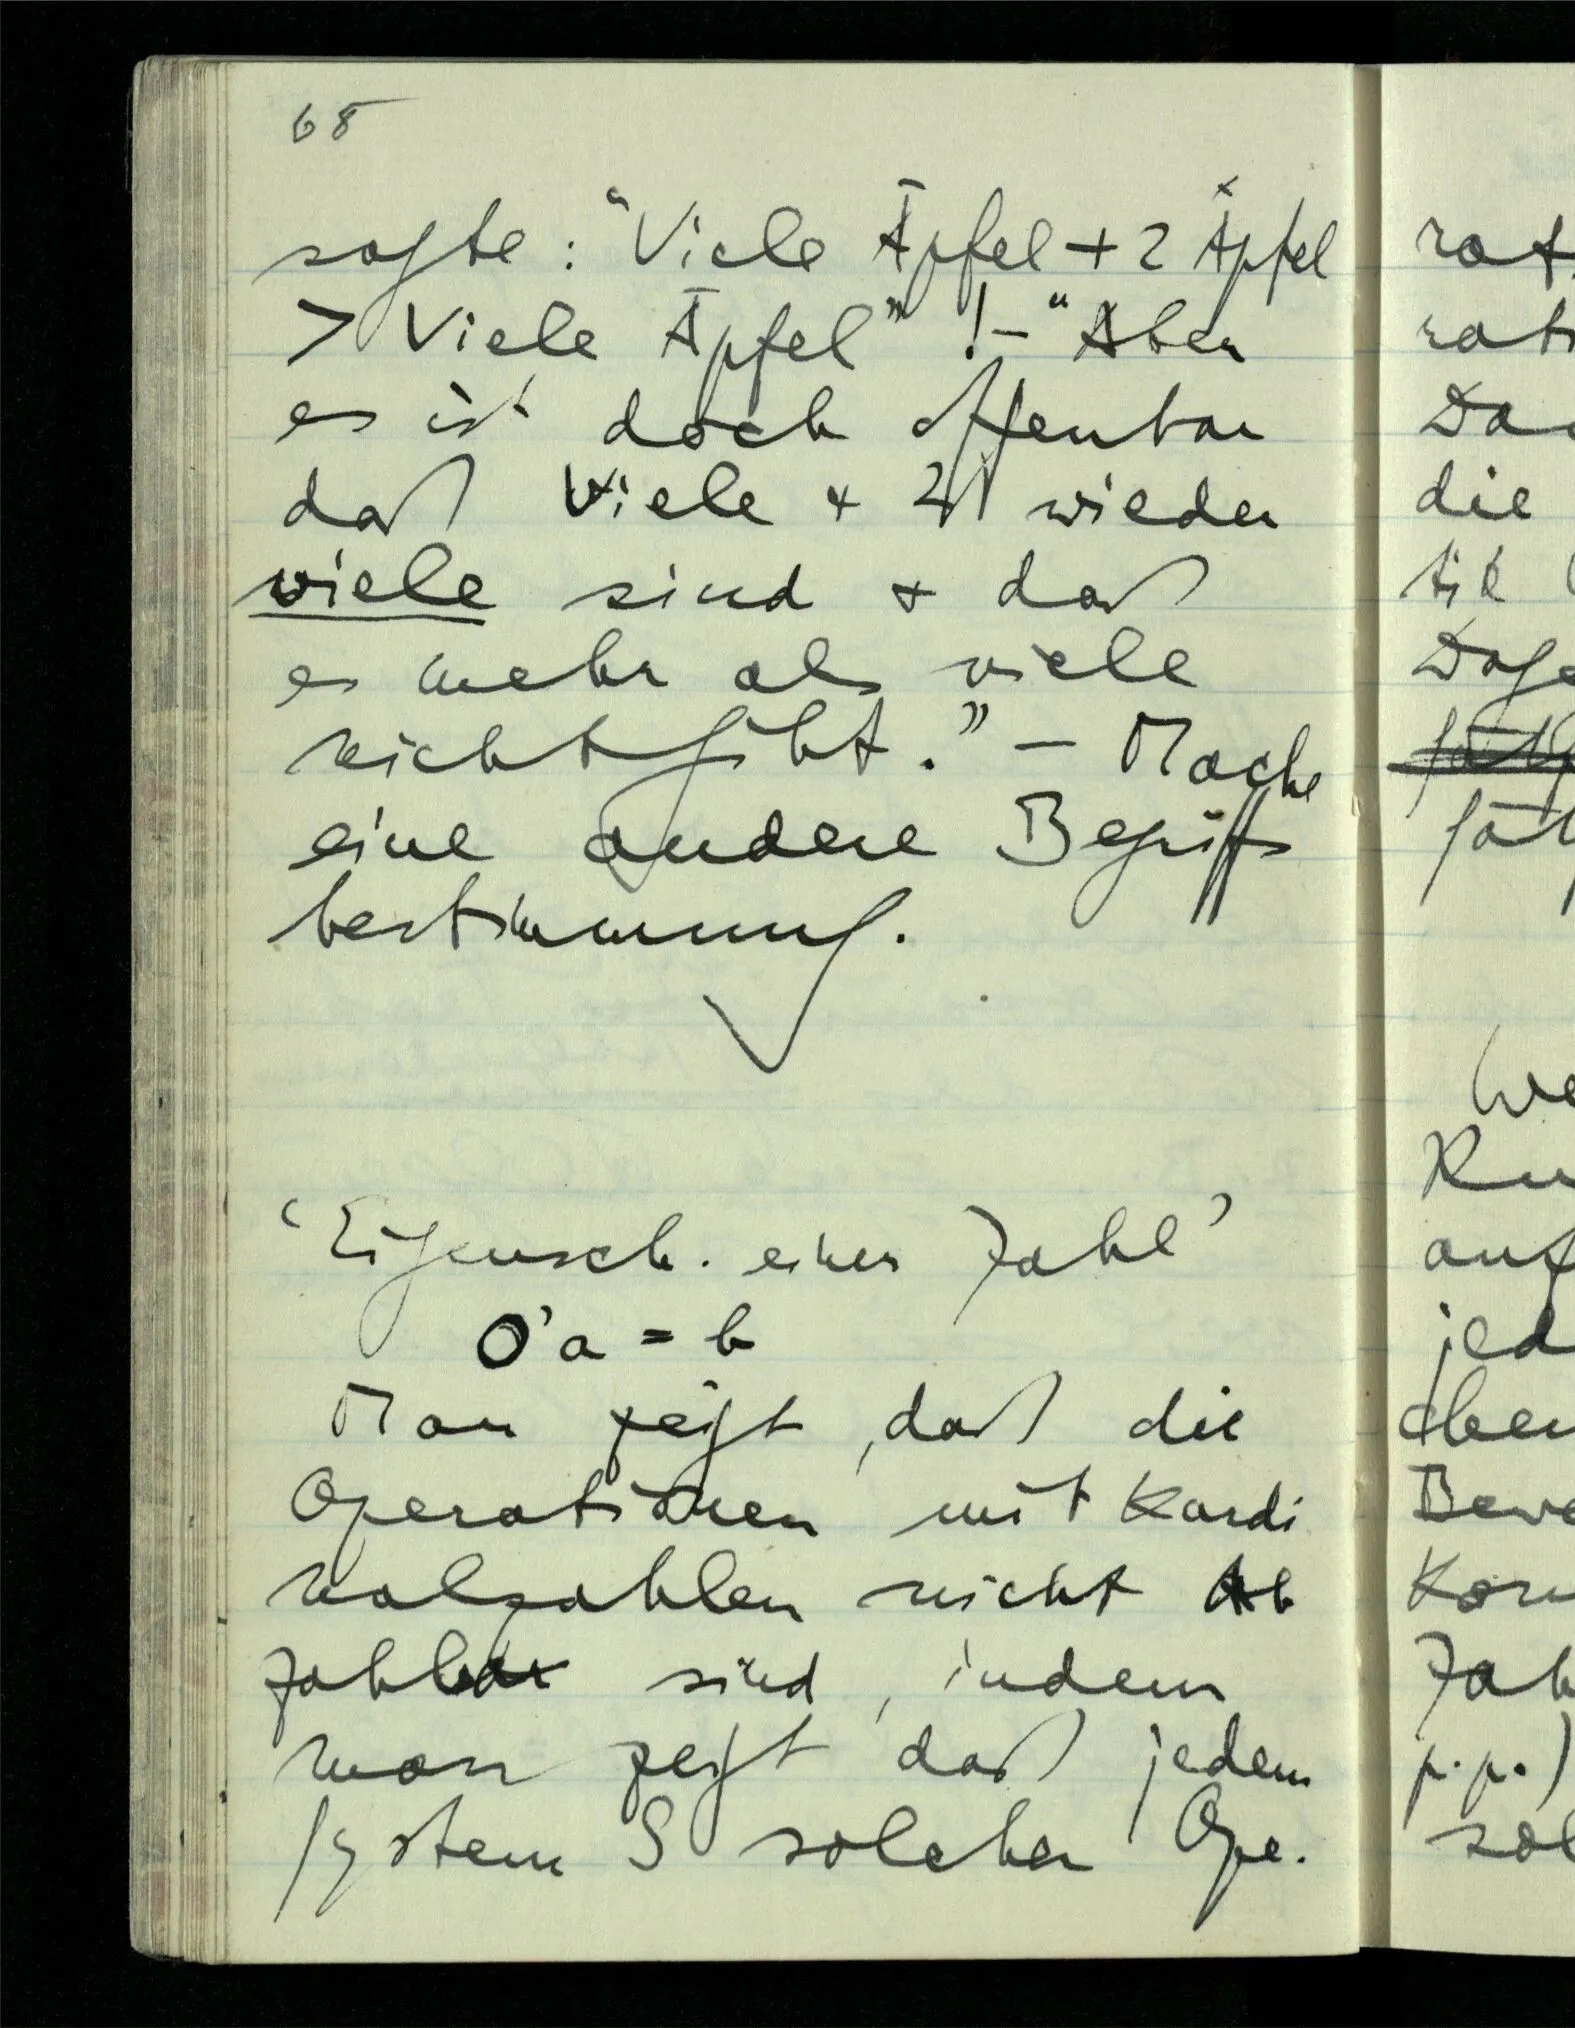 68
sagte: “Viele Äpfel + 2 Äpfel
> Viele Äpfel” ! – “Aber
es ist doch offenbar
daß Viele + 2 wieder
viele sind + daß
es mehr als viele
nicht gibt.” – Mache
eine andere Begriffs
bestimmung.
‘Eigensch. einer Zahl’
O’a = b
Man zeigt, daß die
Operationen mit Kardi
nalzahlen nicht Ab
zahlbar sind, indem
man zeigt daß jedem
System S solcher Ope.
rat
rat
die
tik
auf
jed
p.p.)
sol